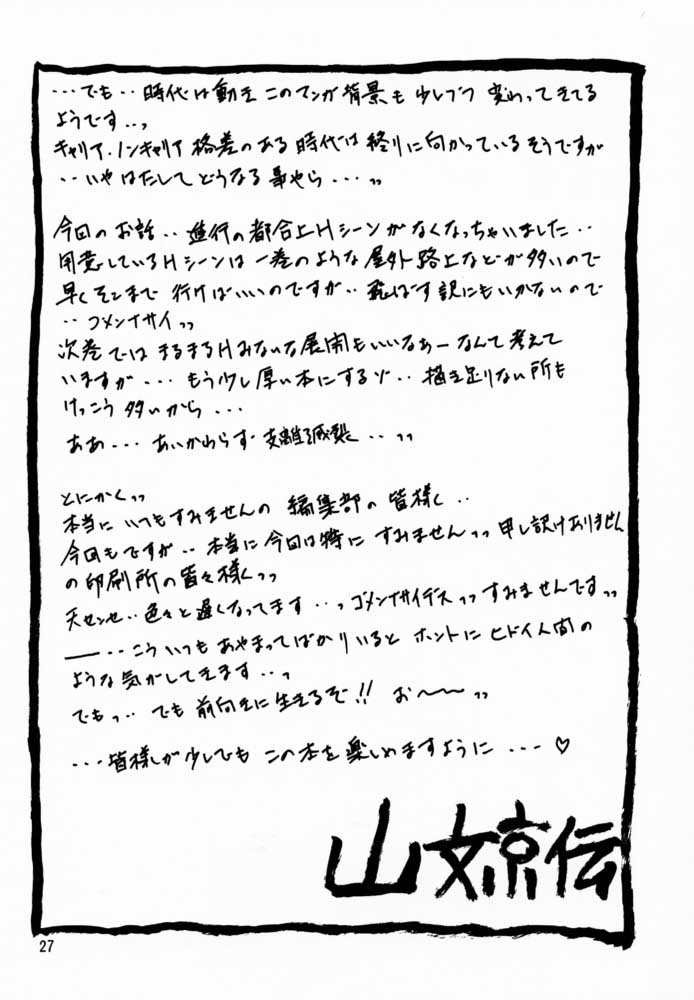 ･･･でも･･時代は動き このマンガ背景も少しづつ 変わってきてる
ようです･･っ
キャリア.ノンキャリア 格差のある時代は終りに向かっているそうですが
･･いやはたしてどうなる事やら･･･っっ
今回のお話･･進行の都合上Hシーンがなくなっちゃいました･･
用意しているHシーンは一巻のような屋外路上などが多いので
早くそこまで行けばいいのですが･･飛ばす訳にもいかないので
･･ゴメンナサイっっ
次巻ではまるまるHみたいな展開もいいなぁーなんて考えて
いますが･･･もう少し厚い本にするゾ･･描き足りない所も
けっこう多いから･･･
ああ･･･あいかわらず支離滅裂･･っっ
とにかくっっ
本当にいつもすみませんの 編集部の皆様く･･
今回もですが･･本当に今回は特に すみませんっっ 申し訳けありません
の印刷所の皆々様くっっ
天センセ･･色々と遅くなってます･･っゴメンナサイデスっっすみませんですっっ
――･･こういつもあやまってばかりいると ホントにヒドイ人間の
ような気がしてきます･･っ
でもっ･･でも前向きに生きるぞ!! お〜〜っっ
･･･皆様しが少しでも この本を楽しめますように･･･♡
山文京伝
27